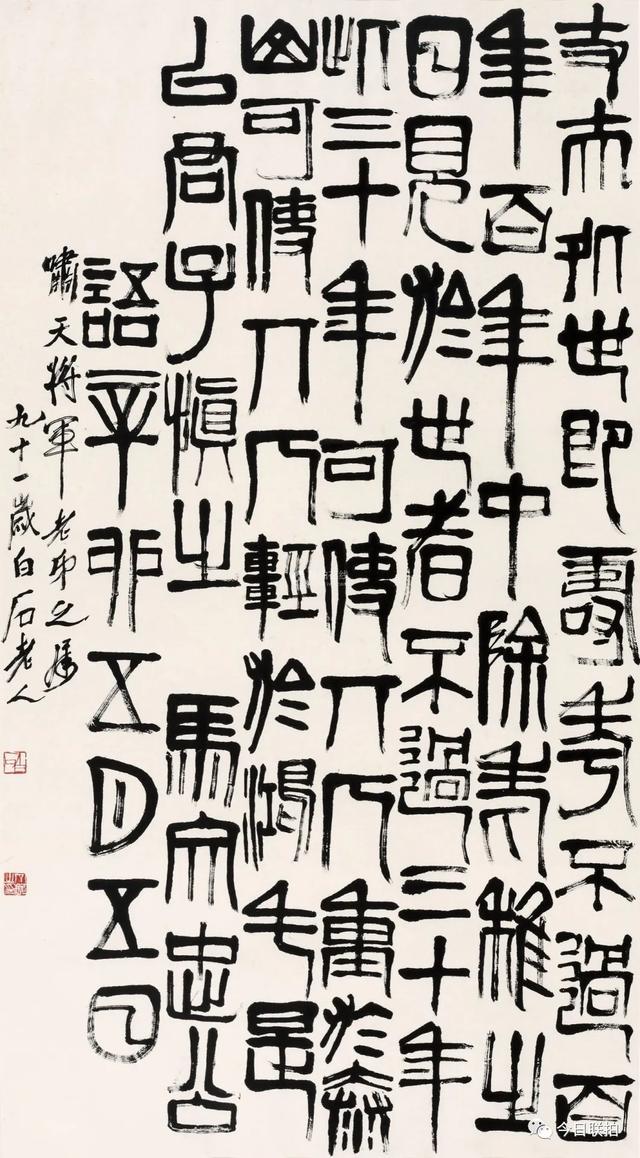 丈夫処世即壽考不過百
年百年中除老稚之
日見於世者不過三十年
此三十年可使人人重於泰
山可使人人輕於鴻毛是
以君子慎之 馬文忠公
語辛卯五月五日
嘯天將軍老弟之屬
九十一歲白石老人
今日联拍